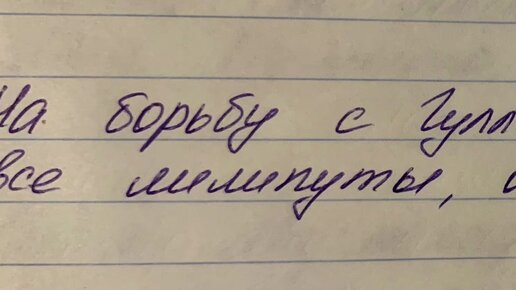 На борьбу с Гулл
все лилипуты,